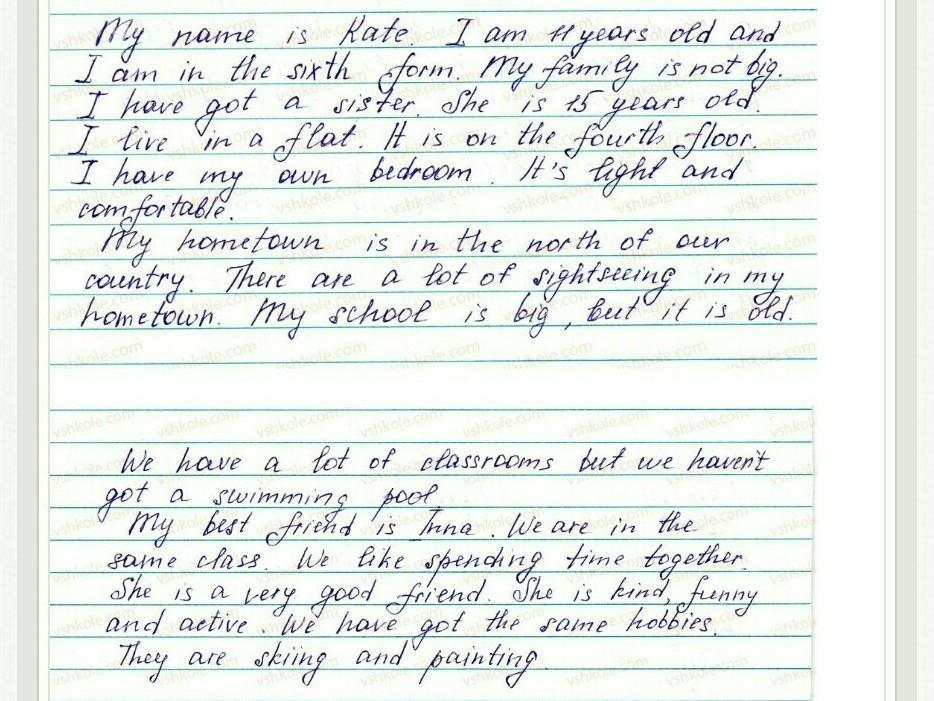 My name is Kate. I am 11 years old and
I am in the sixth form. My family is not big.
I have got a sister. She is 15 years old.
I live in a flat. It is on the fourth floor.
I have my own bedroom. It's light and
comfortable.
My hometown is in the north of our
country. There are a lot of sightseeing in my
hometown. My school is big, but it is old.
We have a lot of classrooms but we haven't
got a swimming pool
My best friend is Inna. We are in the
same class. We like spending time together.
She is a very good friend. She is kind, funny
and active. We have got the same hobbies.
They are skiing and painting.